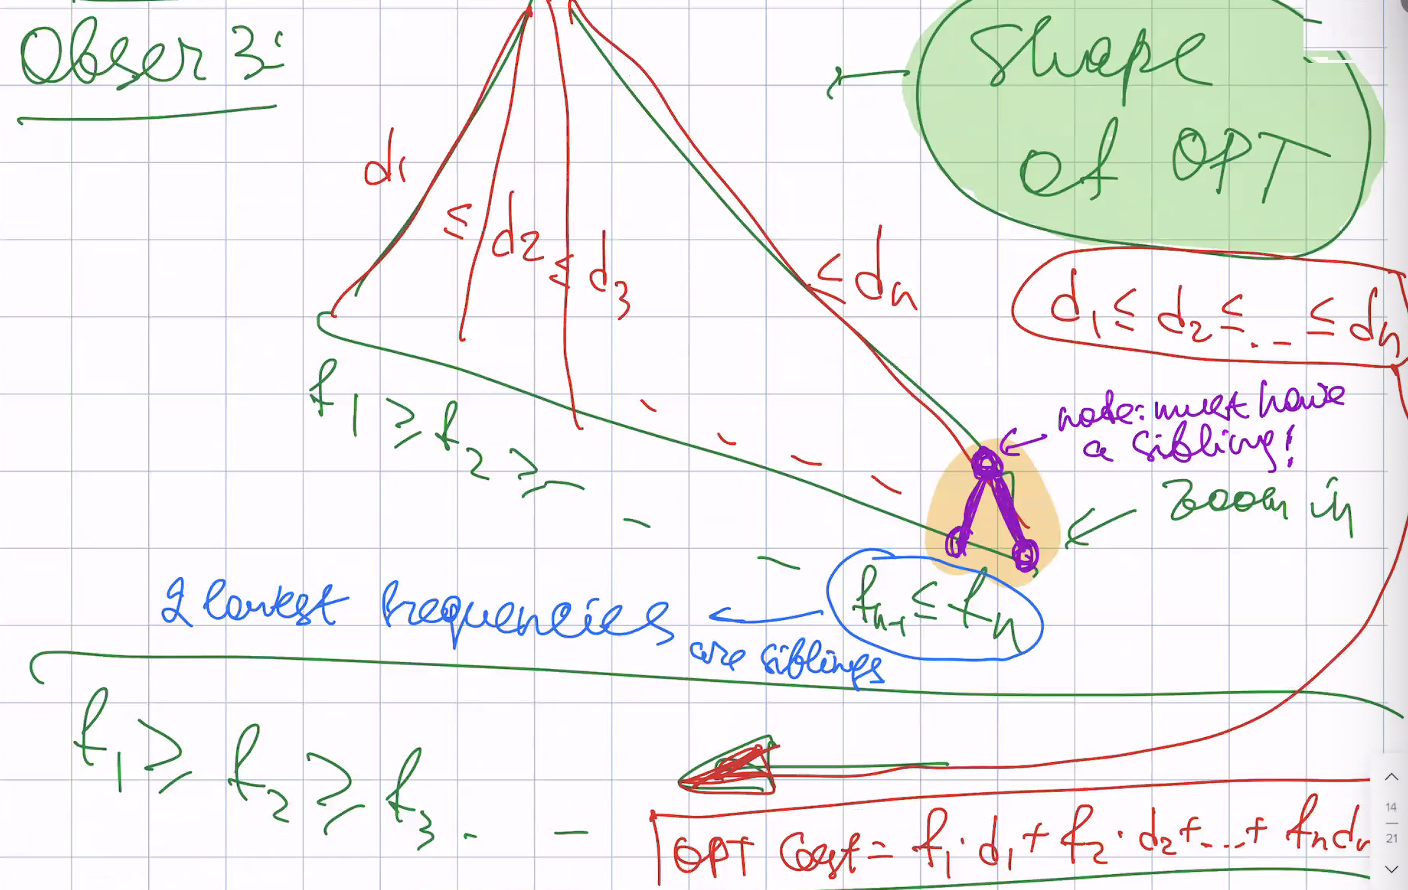 Obser 3:
Shape
of OPT
d1
≤ d2
≤ d3
≤ dn
d1 ≤ d2 ≤ .. - ≤ dn
f1 ≥ f2 ≥
note: must have
a sibling!
zoom in
fn-1 ≤ fn
2 lowest frequencies
are siblings
f1 ≥ f2 ≥ f3 . -
OPT Cost = f1 · d1 + f2 · d2 + ... + fn dn
14
21